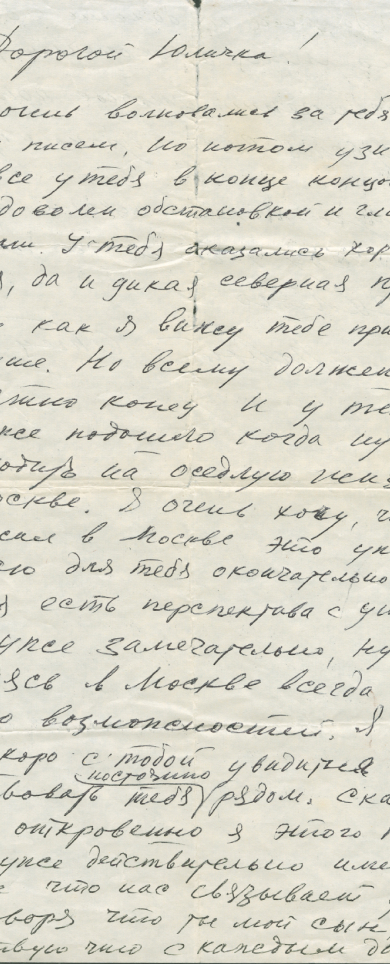 Дорогой Юличка!
очень волновались за тебя
писем. Но потом узн
все у тебя в конце концо
доволен обстановкой и гл
ми. У тебя оказались хор
я, да и дикая северная п
как я вижу тебе при
ше. Но всему должен
конец и у те
же подошло когда ну
одить на оседлую жиз
оскве. Я очень хочу, ч
сал в Москве это уж
ею для тебя окончательно
я есть перспектива с уч
уже замечательно, ну
ясь в Москве всегда
о возможностей. Я
коро с тобой увидится
постоянно
твовать тебя рядом. Ска
откровенно я этого
уже действительно име
что нас связывает
воря что ты мой сын
ствую что с каждым д